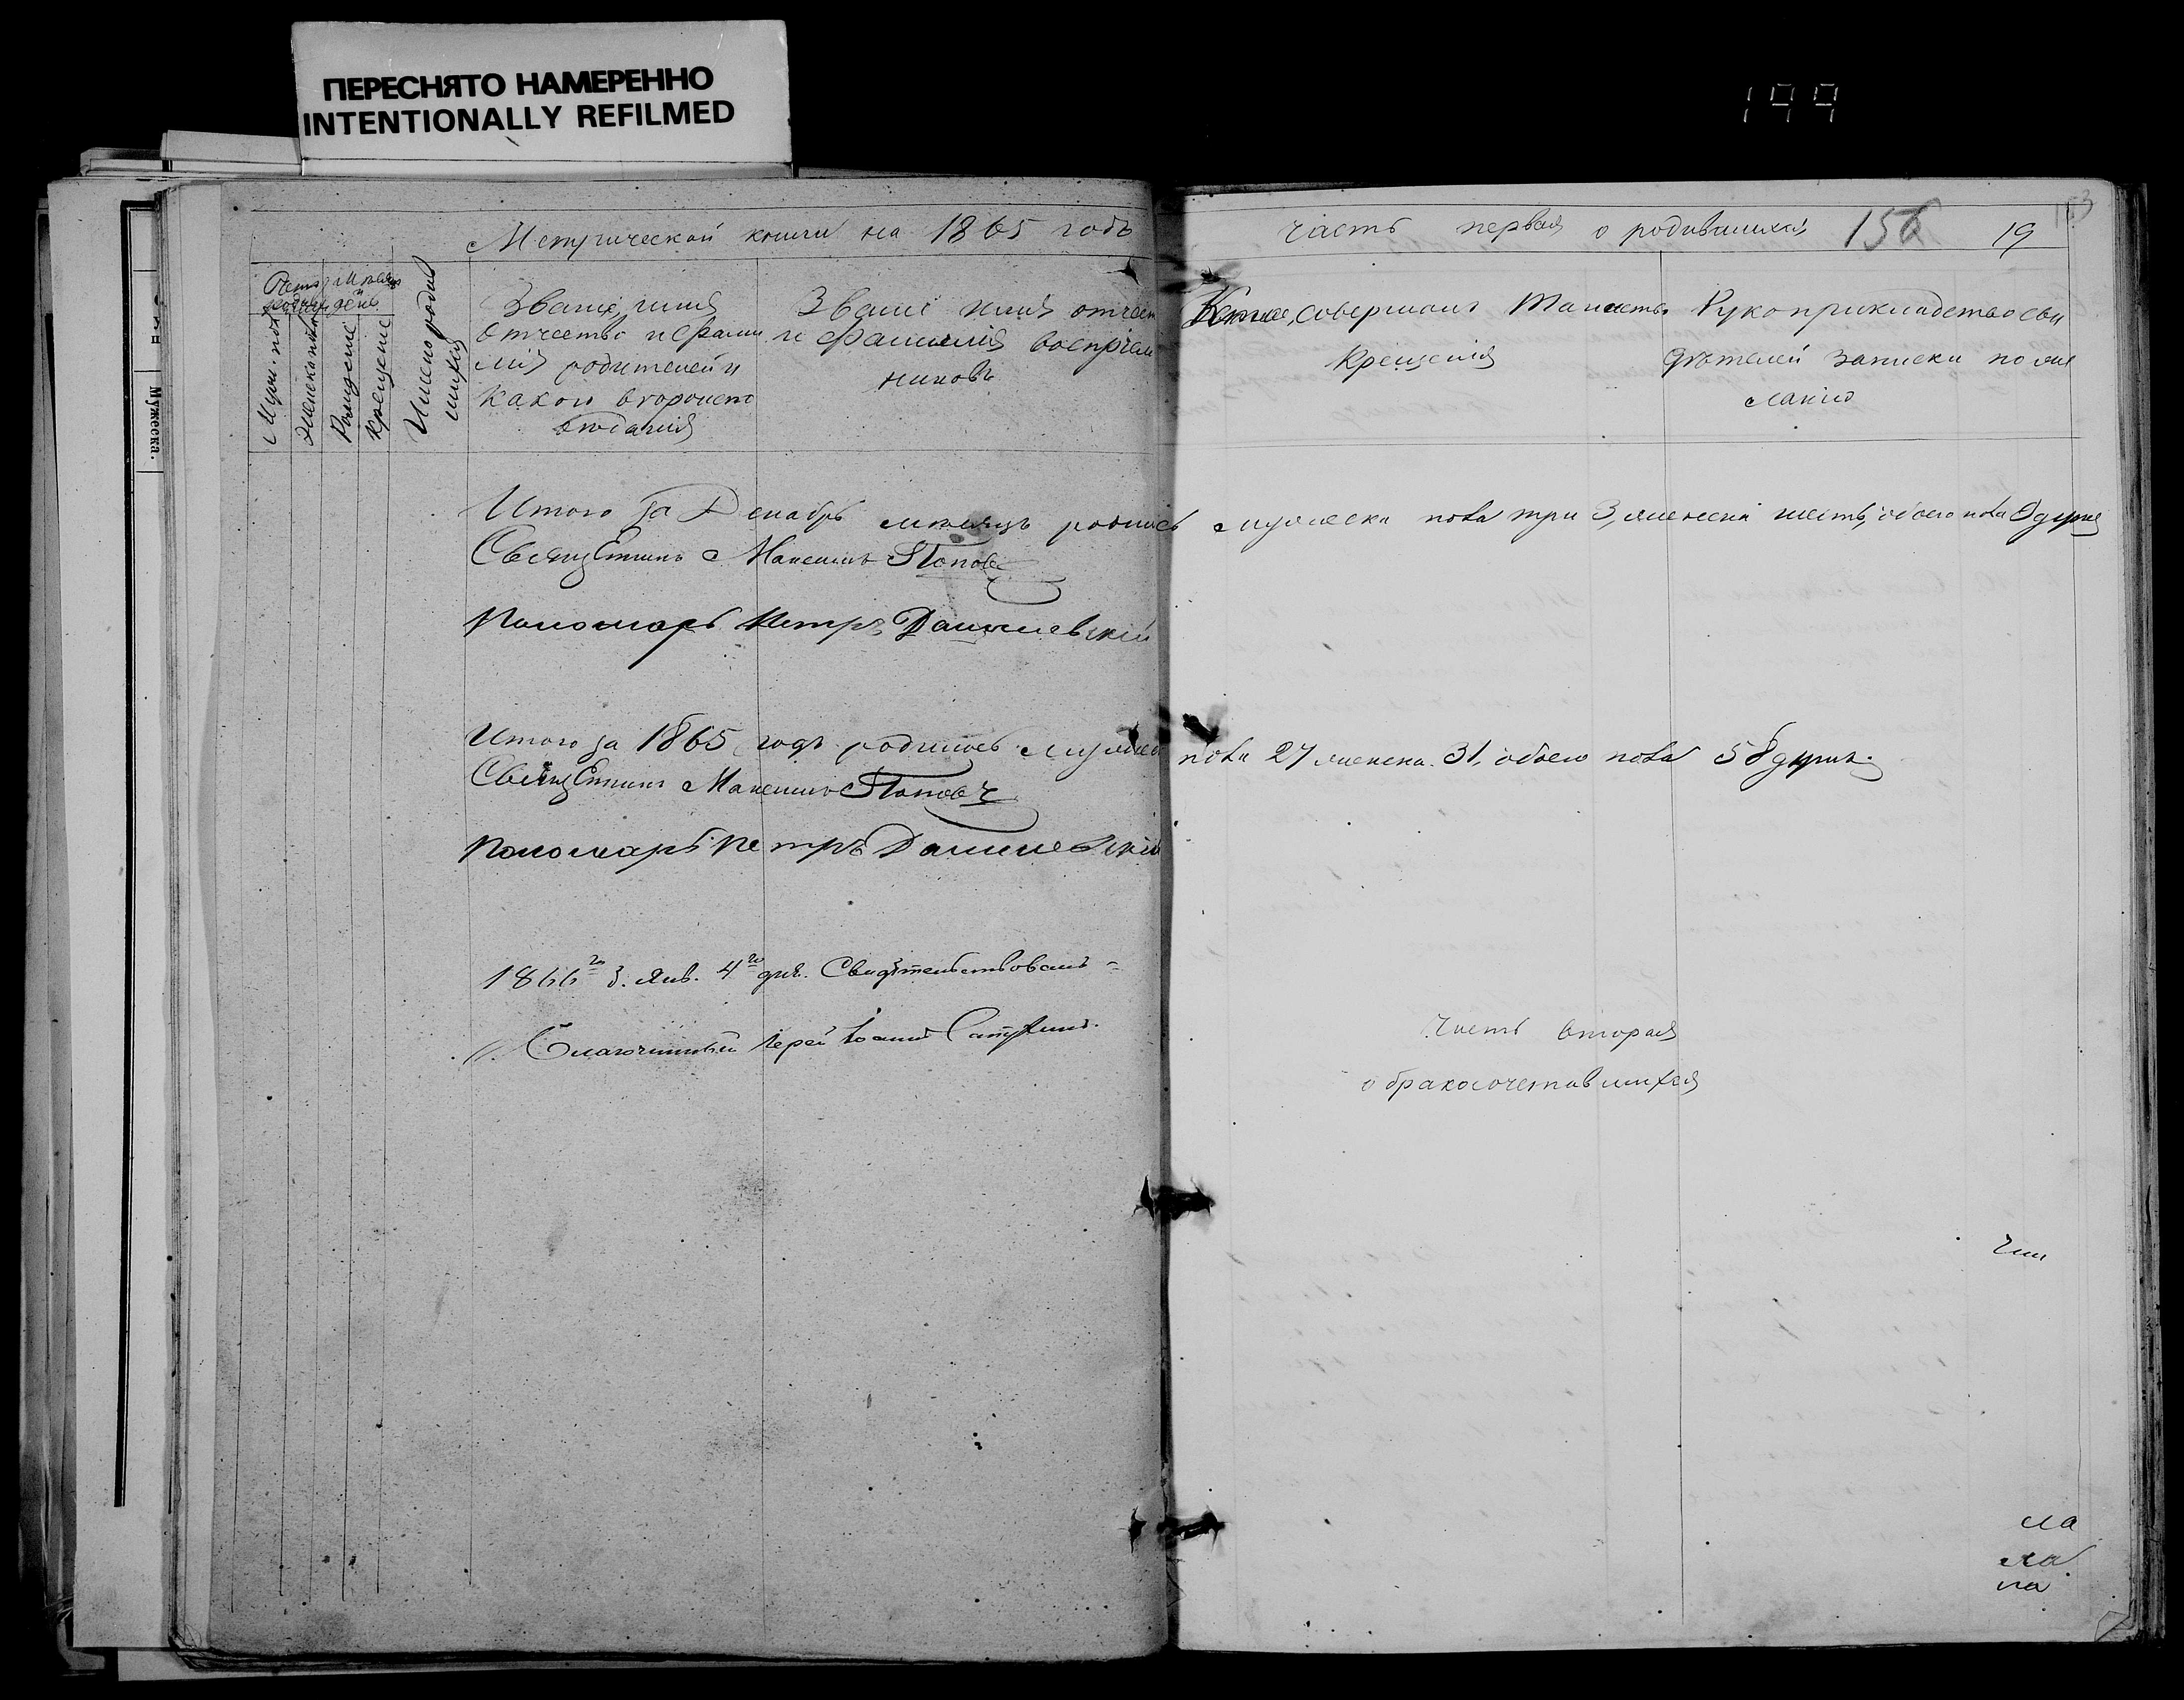 ПЕРЕСНЯТО НАМЕРЕННО
INTENTIONALLY REFILMED
199
Мужеска.
Метрической книги на 1865 годъ
часть первая о родившихся 156 19
Мѣсяцъ и день.
Рожденiе
Крещенiе
Имена родив
шихся
Званiе, имя
отчество и фами
лiя родителей и
какого вѣроиспо
вѣданiя
Званiе имя отчест
и фамилiя воспрiем
никовъ
Кто совершалъ Таинство
Крещенiя
Рукоприкладство сви
дѣтелей записки по же
ланiю
Итого за Декабрь мѣсяцъ родилось мужеска пола три 3, женска шесть, обоего пола 9 душъ
Священникъ Максимъ Попов
Пономарь Петръ Данилевскiй
Итого за 1865 годъ родилось мужеск пола 27 женска. 31. обоего пола 58 душъ.
Священникъ Максимъ Попов
Пономарь Петръ Данилевскiй
1866го г. Янв. 4го дня. Свидѣтельствовалъ
Благочинный Iерей Iоаннъ
Часть вторая
о бракосочетавшихся
ла
ла
на